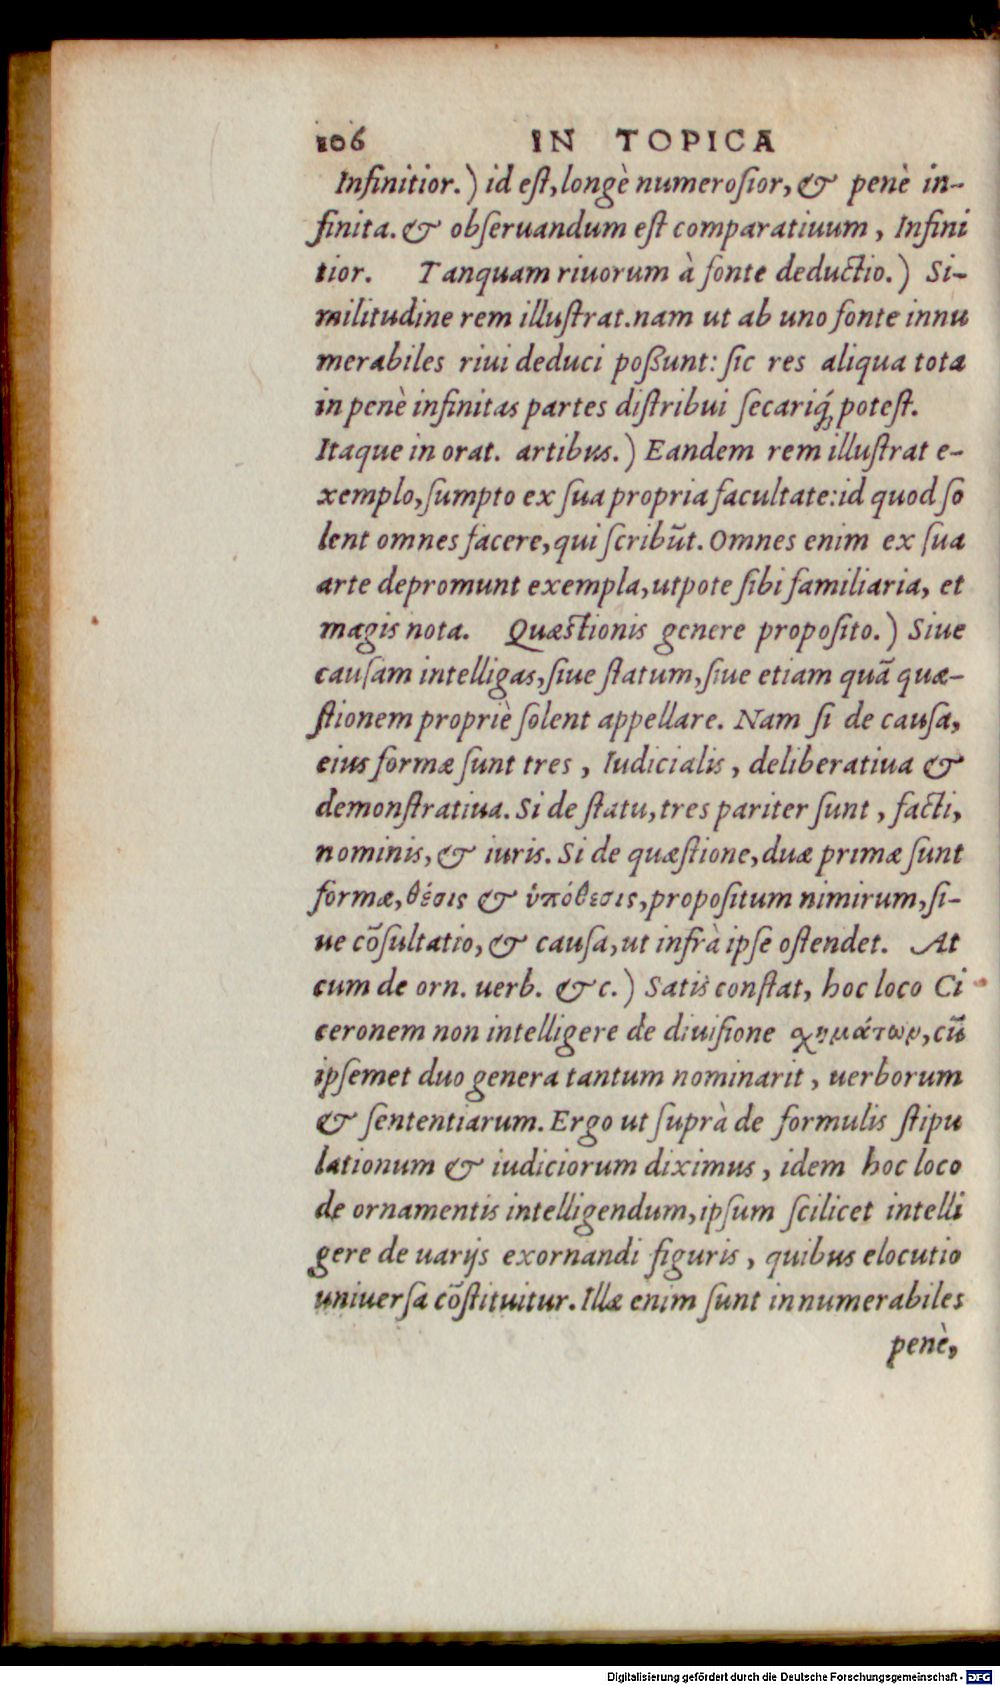 106 IN TOPICA
Infinitior.) id eſt, longè numeroſior, & penè in-
finita. & obſeruandum eſt comparatiuum, Infini
tior. Tanquam riuorum à fonte deductio.) Si-
militudine rem illuſtrat. nam ut ab uno fonte innu
merabiles riui deduci poßunt: ſic res aliqua tota
in penè infinitas partes diſtribui ſecariq́; poteſt.
Itaque in orat. artibus.) Eandem rem illuſtrat e-
xemplo, ſumpto ex ſua propria facultate: id quod ſo
lent omnes facere, qui ſcribũt. Omnes enim ex ſua
arte depromunt exempla, utpote ſibi familiaria, et
magis nota. Quæstionis genere propoſito.) Siue
cauſam intelligas, ſiue ſtatum, ſiue etiam quã quæ-
ſtionem propriè ſolent appellare. Nam ſi de cauſa,
eius formæ ſunt tres, Iudicialis, deliberatiua &
demonſtratiua. Si de ſtatu, tres pariter ſunt, facti,
nominis, & iuris. Si de quæſtione, duæ primæ ſunt
formæ, θέσις & ὑπόθεσις, propoſitum nimirum, ſi-
ue cõſultatio, & cauſa, ut infrà ipſe oſtendet. At
cum de orn. uerb. &c.) Satis conſtat, hoc loco Ci
ceronem non intelligere de diuiſione χημάτων, cũ
ipſemet duo genera tantum nominarit, uerborum
& ſententiarum. Ergo ut ſuprà de formulis ſtipu
lationum & iudiciorum diximus, idem hoc loco
de ornamentis intelligendum, ipſum ſcilicet intelli
gere de uarijs exornandi figuris, quibus elocutio
uniuerſa cõſtituitur. Illæ enim ſunt innumerabiles
penè,
Digitalisierung gefördert durch die Deutsche Forschungsgemeinschaft - DFG